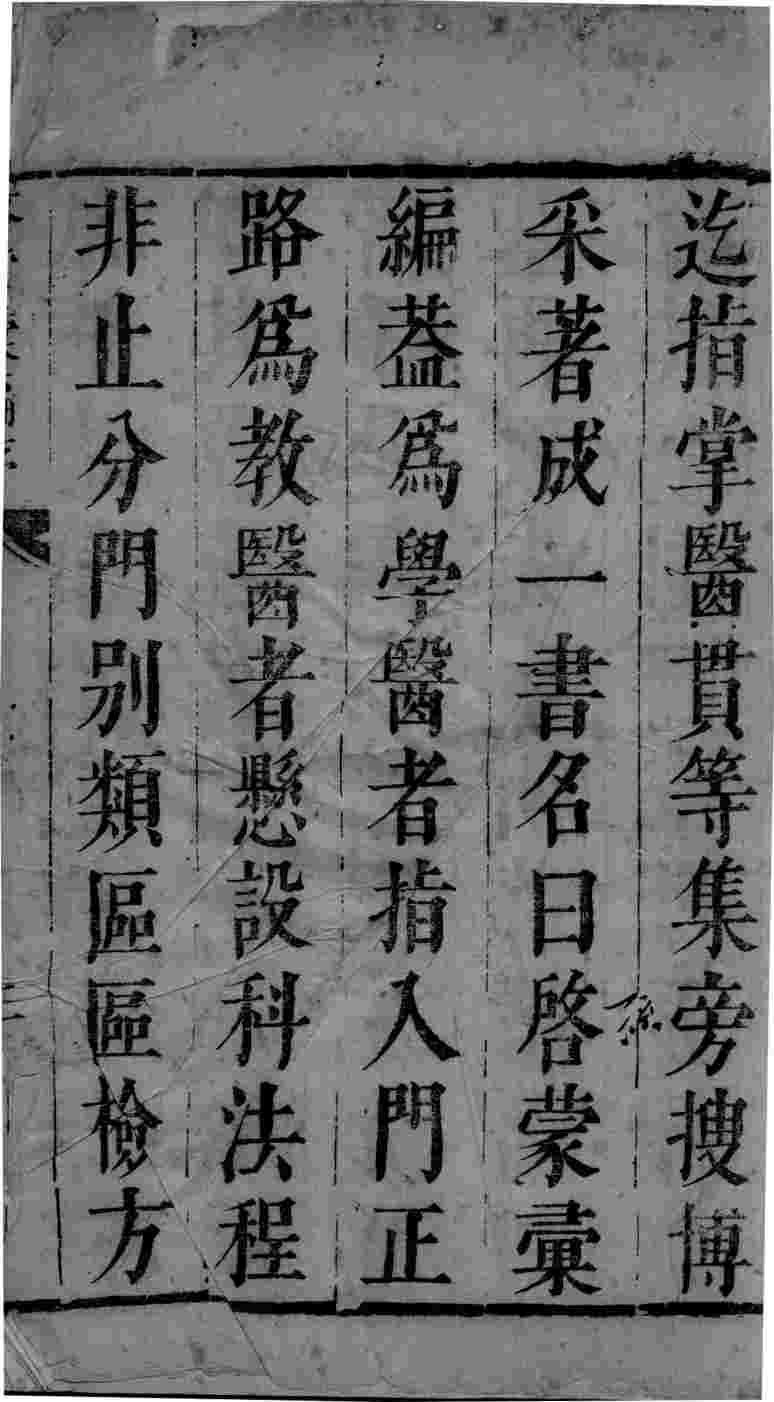 迄指掌醫貫等集旁搜博
采著成一書名曰啓蒙彙
編葢爲學醫者指入門正
路爲教醫者懸設科法程
非止分門別類區區檢方